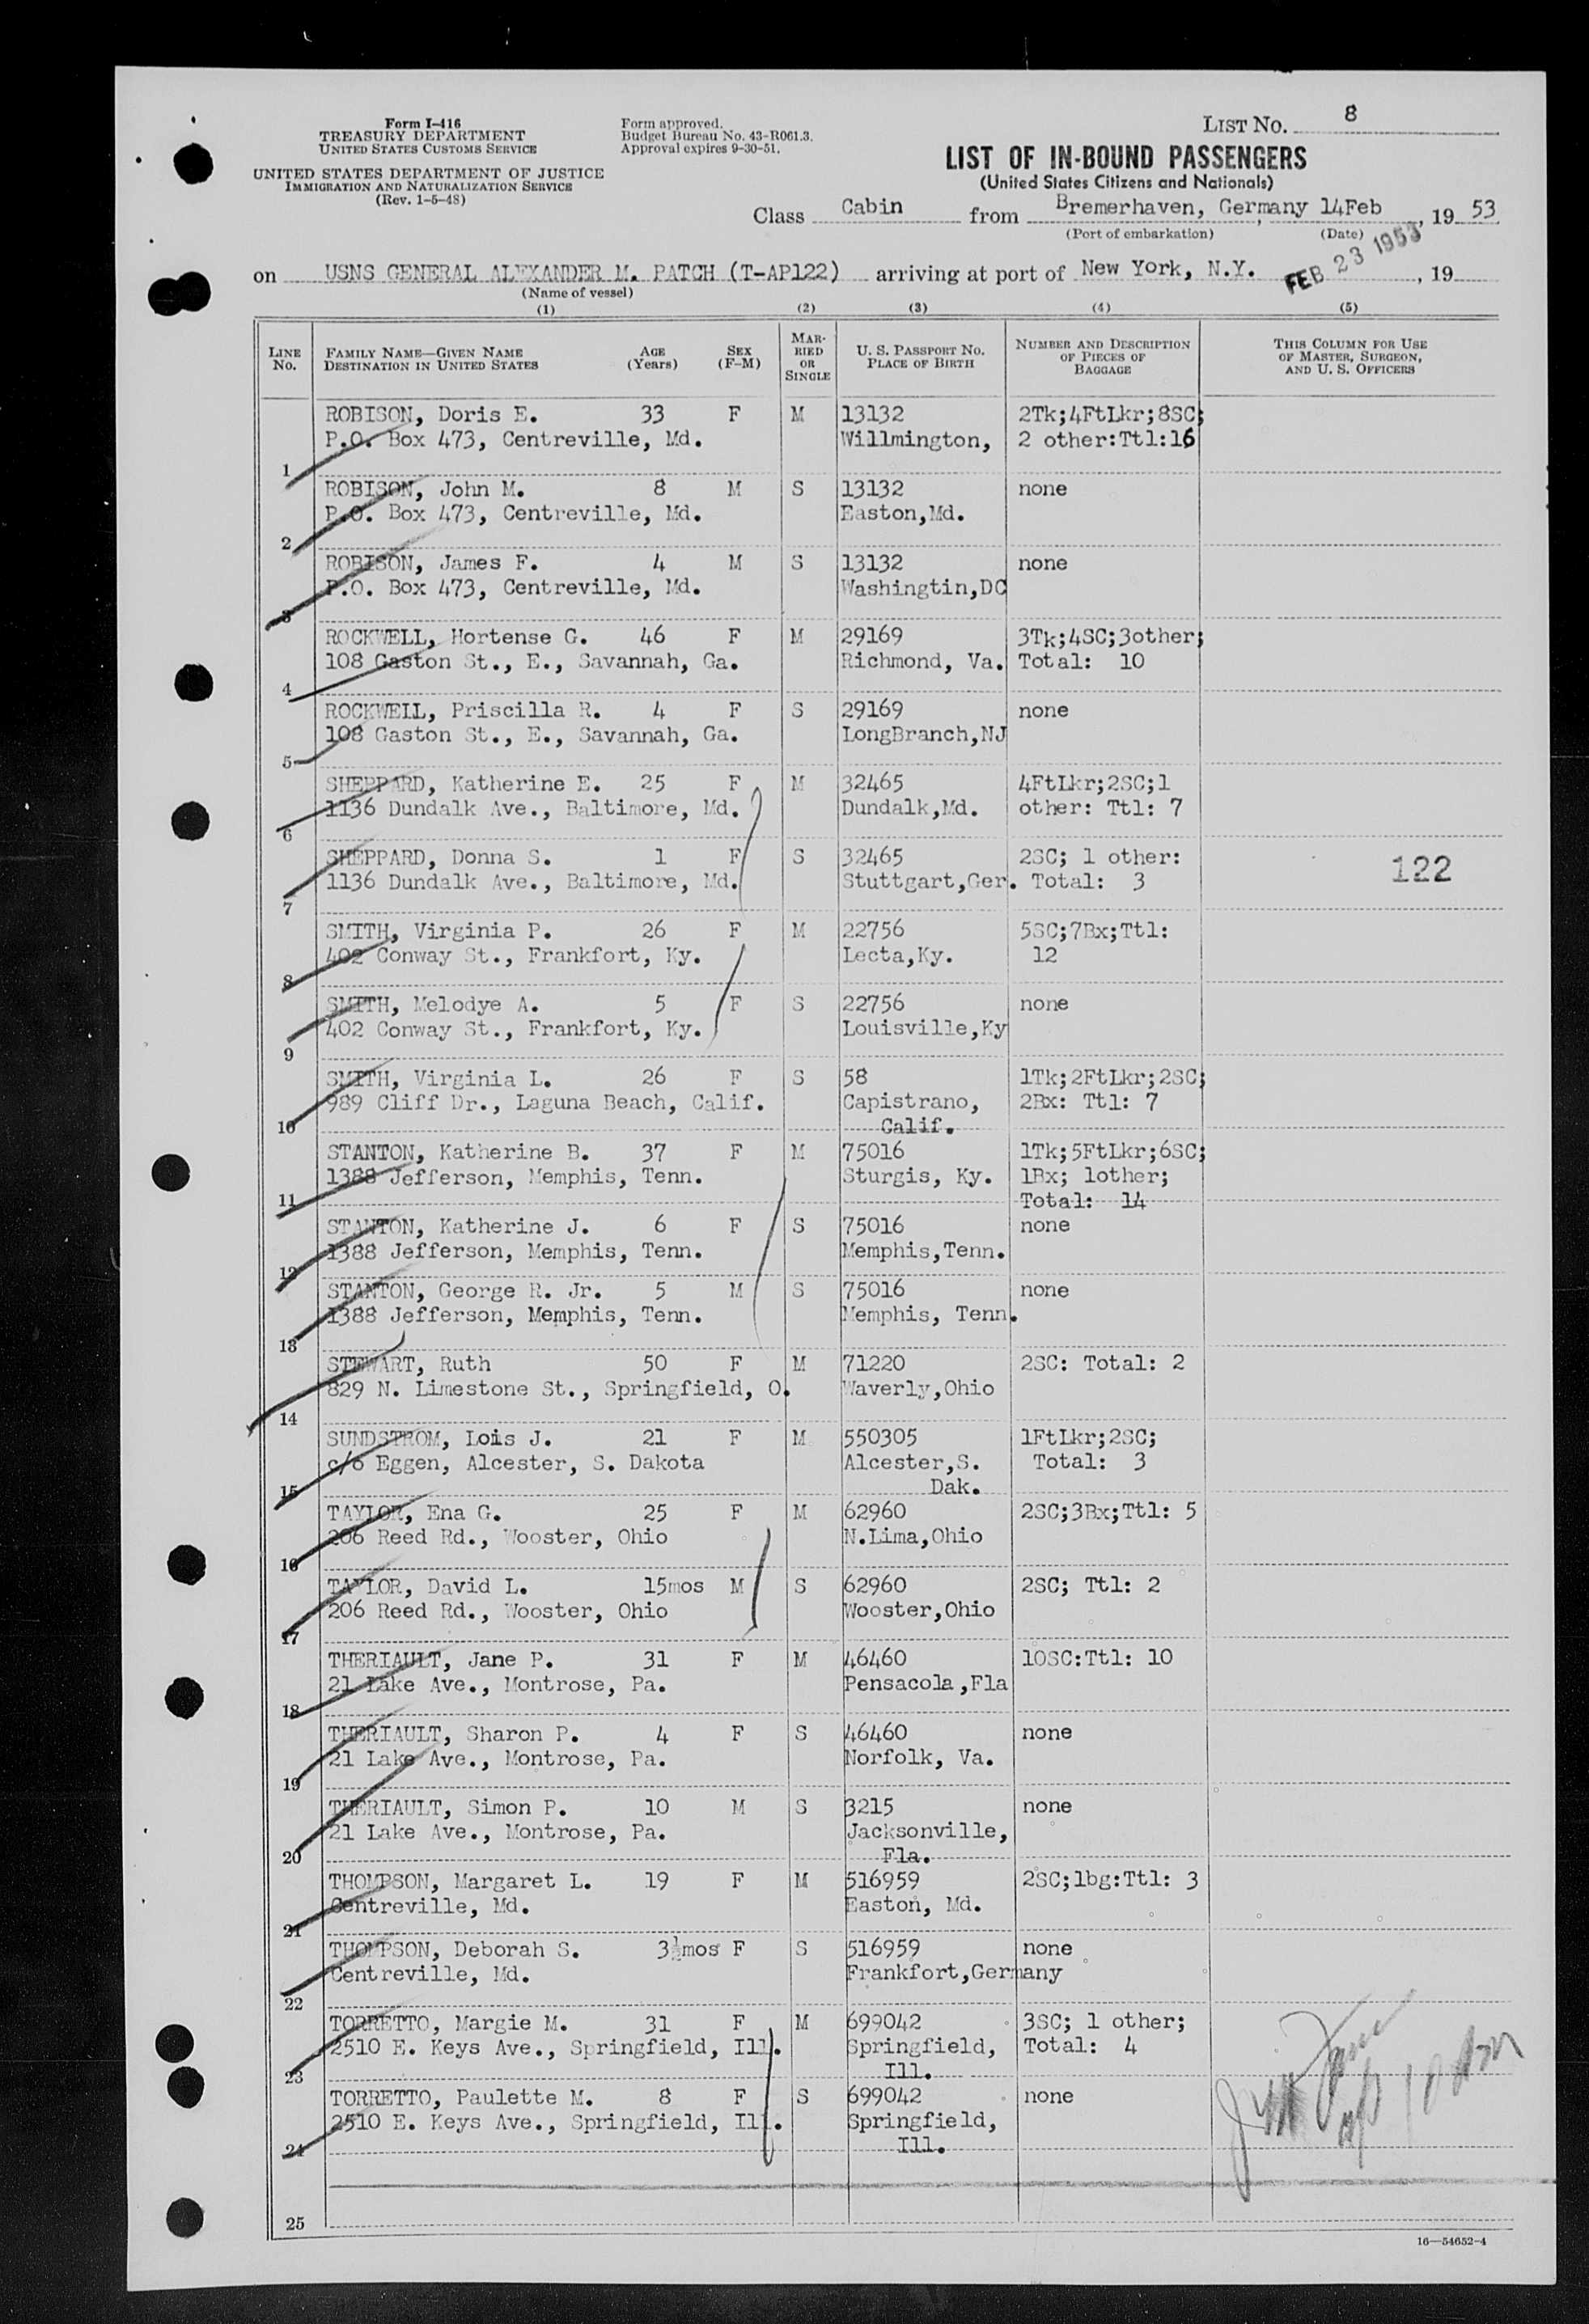 Form I-416
TREASURY DEPARTMENT
UNITED STATES CUSTOMS SERVICE
UNITED STATES DEPARTMENT OF JUSTICE
IMMIGRATION AND NATURALIZATION SERVICE
(Rev. 1-5-48)
Form approved.
Budget Bureau No. 43-R061.3.
Approval expires 9-30-51.
LIST NO. 8
LIST OF IN-BOUND PASSENGERS
(United States Citizens and Nationals)
Class Cabin from Bremerhaven, Germany, 14Feb, 19 53
(Port of embarkation) (Date)
on USNS GENERAL ALEXANDER M. PATCH (T-AP122) arriving at port of New York, N.Y. FEB 23 1953, 19
(Name of vessel)
(1) (2) (3) (4) (5)
LINE NO. FAMILY NAME—GIVEN NAME DESTINATION IN UNITED STATES AGE (Years) SEX (F-M) MARRIED OR SINGLE U. S. PASSPORT NO. PLACE OF BIRTH NUMBER AND DESCRIPTION OF PIECES OF BAGGAGE THIS COLUMN FOR USE OF MASTER, SURGEON, AND U. S. OFFICERS
ROBISON, Doris E. 33 F M 13132 2Tk;4FtLkr;8SC;
P.O. Box 473, Centreville, Md. Willmington, 2 other:Ttl:16
1
ROBISON, John M. 8 M S 13132 none
P.O. Box 473, Centreville, Md. Easton,Md.
2
ROBISON, James F. 4 M S 13132 none
P.O. Box 473, Centreville, Md. Washingtin,DC
3
ROCKWELL, Hortense G. 46 F M 29169 3Tk;4SC;3other;
108 Gaston St., E., Savannah, Ga. Richmond, Va. Total: 10
4
ROCKWELL, Priscilla R. 4 F S 29169 none
108 Gaston St., E., Savannah, Ga. LongBranch,NJ
5
SHEPPARD, Katherine E. 25 F M 32465 4FtLkr;2SC;1
1136 Dundalk Ave., Baltimore, Md. Dundalk,Md. other: Ttl: 7
6
SHEPPARD, Donna S. 1 F S 32465 2SC; 1 other:
1136 Dundalk Ave., Baltimore, Md. Stuttgart,Ger. Total: 3 122
7
SMITH, Virginia P. 26 F M 22756 5SC;7Bx;Ttl:
402 Conway St., Frankfort, Ky. Lecta,Ky. 12
8
SMITH, Melodye A. 5 F S 22756 none
402 Conway St., Frankfort, Ky. Louisville,Ky
9
SMITH, Virginia L. 26 F S 58 1Tk;2FtLkr;2SC;
989 Cliff Dr., Laguna Beach, Calif. Capistrano, 2Bx: Ttl: 7
10 Calif.
STANTON, Katherine B. 37 F M 75016 1Tk;5FtLkr;6SC;
1388 Jefferson, Memphis, Tenn. Sturgis, Ky. 1Bx; 1other;
11 Total: 14
STANTON, Katherine J. 6 F S 75016 none
1388 Jefferson, Memphis, Tenn. Memphis,Tenn.
12
STANTON, George R. Jr. 5 M S 75016 none
1388 Jefferson, Memphis, Tenn. Memphis, Tenn.
13
STEWART, Ruth 50 F M 71220 2SC: Total: 2
829 N. Limestone St., Springfield, O. Waverly,Ohio
14
SUNDSTROM, Lois J. 21 F M 550305 1FtLkr;2SC;
c/o Eggen, Alcester, S. Dakota Alcester,S. Total: 3
15 Dak.
TAYLOR, Ena G. 25 F M 62960 2SC;3Bx;Ttl: 5
206 Reed Rd., Wooster, Ohio N.Lima,Ohio
16
TAYLOR, David L. 15mos M S 62960 2SC; Ttl: 2
206 Reed Rd., Wooster, Ohio Wooster,Ohio
17
THERIAULT, Jane P. 31 F M 46460 10SC:Ttl: 10
21 Lake Ave., Montrose, Pa. Pensacola,Fla
18
THERIAULT, Sharon P. 4 F S 46460 none
21 Lake Ave., Montrose, Pa. Norfolk, Va.
19
THERIAULT, Simon P. 10 M S 3215 none
21 Lake Ave., Montrose, Pa. Jacksonville,
20 Fla.
THOMPSON, Margaret L. 19 F M 516959 2SC;1bg:Ttl: 3
Centreville, Md. Easton, Md.
21
THOMPSON, Deborah S. 3½mos F S 516959 none
Centreville, Md. Frankfort,Germany
22
TORRETTO, Margie M. 31 F M 699042 3SC; 1 other;
2510 E. Keys Ave., Springfield, Ill. Springfield, Total: 4
23 Ill.
TORRETTO, Paulette M. 8 F S 699042 none
2510 E. Keys Ave., Springfield, Ill. Springfield,
24 Ill.
25
16—54652-4